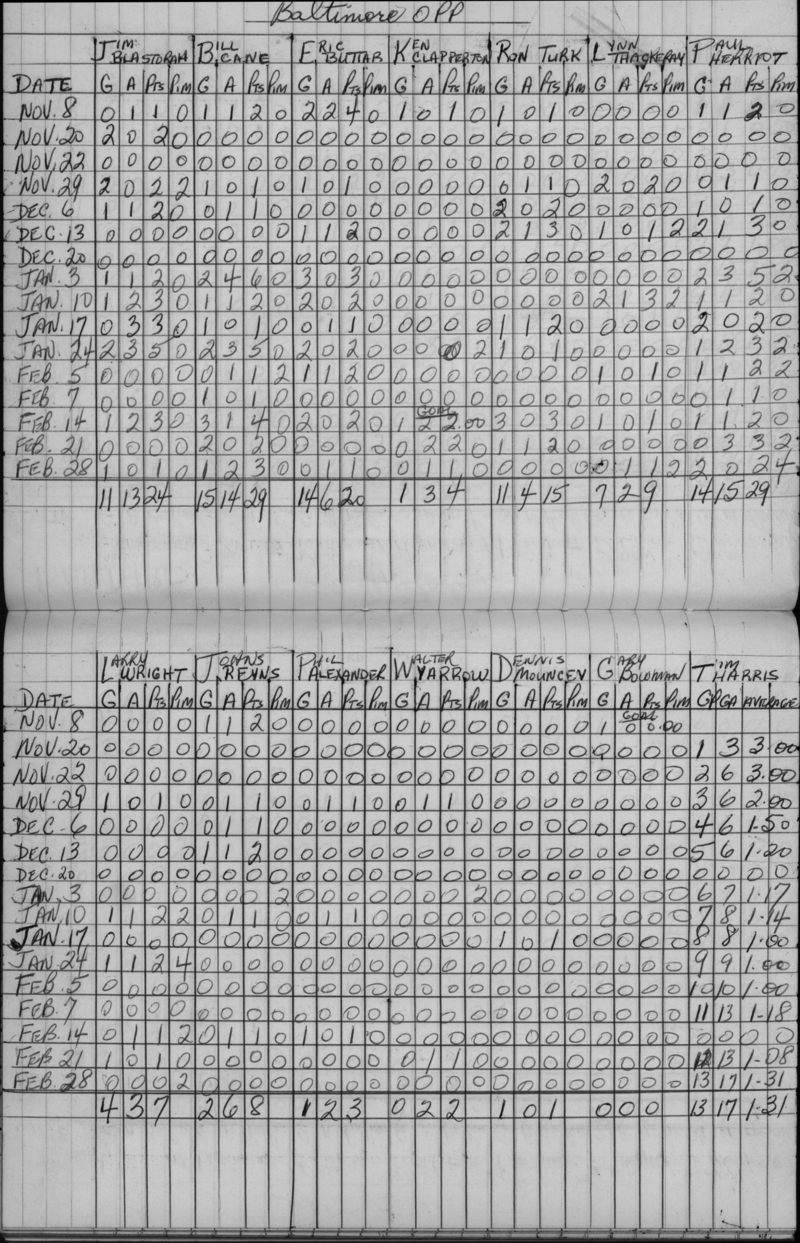 Baltimore OPP
JIM BLASTORAH BILL CANE ERIC BUTTAR KEN CLAPPERTON RON TURK LYNN THACKERAY PAUL HERRIOT
DATE G A Pts Pim G A Pts Pim G A Pts Pim G A Pts Pim G A Pts Pim G A Pts Pim G A Pts Pim
NOV. 8 0 1 1 0 1 1 2 0 2 2 4 0 1 0 1 0 1 0 1 0 0 0 0 0 1 1 2 0
NOV. 20 2 0 2 0 0 0 0 0 0 0 0 0 0 0 0 0 0 0 0 0 0 0 0 0 0 0 0 0
NOV. 22 0 0 0 0 0 0 0 0 0 0 0 0 0 0 0 0 0 0 0 0 0 0 0 0 0 0 0 0
NOV. 29 2 0 2 2 1 0 1 0 1 0 1 0 0 0 0 0 0 1 1 0 2 0 2 0 0 1 1 0
DEC. 6 1 1 2 0 0 1 1 0 0 0 0 0 0 0 0 0 2 0 2 0 0 0 0 0 1 0 1 0
DEC. 13 0 0 0 0 0 0 0 0 1 1 2 0 0 0 0 0 2 1 3 0 1 0 1 2 2 1 3 0
DEC. 20 0 0 0 0 0 0 0 0 0 0 0 0 0 0 0 0 0 0 0 0 0 0 0 0 0 0 0 0
JAN. 3 1 1 2 0 2 4 6 0 3 0 3 0 0 0 0 0 0 0 0 0 0 0 0 0 2 3 5 2
JAN. 10 1 2 3 0 1 1 2 0 2 0 2 0 0 0 0 0 0 0 0 0 2 1 3 2 1 1 2 0
JAN. 17 0 3 3 0 1 0 1 0 0 1 1 0 0 0 0 0 1 1 2 0 0 0 0 0 2 0 2 0
JAN. 24 2 3 5 0 2 3 5 0 2 0 2 0 0 0 0 2 1 0 1 0 0 0 0 0 1 2 3 2
FEB. 5 0 0 0 0 0 1 1 2 1 1 2 0 0 0 0 0 0 0 0 0 1 0 1 0 1 1 2 2
FEB. 7 0 0 0 0 1 0 1 0 0 0 0 0 0 0 0 0 0 0 0 0 0 0 0 0 0 1 1 0
FEB. 14 1 2 3 0 3 1 4 0 2 0 2 0 1 GOAL 2 2.00 3 0 3 0 1 0 1 0 1 1 2 0
FEB. 21 0 0 0 0 2 0 2 0 0 0 0 0 0 2 2 0 1 1 2 0 0 0 0 0 0 3 3 2
FEB. 28 1 0 1 0 1 2 3 0 0 1 1 0 0 1 1 0 0 0 0 0 0 1 1 2 2 0 2 4
11 13 24 15 14 29 14 6 20 1 3 4 11 4 15 7 2 9 14 15 29
LARRY WRIGHT JOHNS RENNS PHIL ALEXANDER WALTER YARROW DENNIS MOUNCEY GARY BOWMAN TIM HARRIS
DATE G A Pts Pim G A Pts Pim G A Pts Pim G A Pts Pim G A Pts Pim G A Pts Pim GP GA AVERAGE
NOV. 8 0 0 0 0 1 1 2 0 0 0 0 0 0 0 0 0 0 0 0 0 1 GOAL 0 0.00
NOV. 20 0 0 0 0 0 0 0 0 0 0 0 0 0 0 0 0 0 0 0 0 0 0 0 0 1 3 3.00
NOV. 22 0 0 0 0 0 0 0 0 0 0 0 0 0 0 0 0 0 0 0 0 0 0 0 0 2 6 3.00
NOV. 29 1 0 1 0 0 1 1 0 0 1 1 0 0 1 1 0 0 0 0 0 0 0 0 0 3 6 2.00
DEC. 6 0 0 0 0 0 1 1 0 0 0 0 0 0 0 0 0 0 0 0 0 0 0 0 0 4 6 1.50
DEC. 13 0 0 0 0 1 1 2 0 0 0 0 0 0 0 0 0 0 0 0 0 0 0 0 0 5 6 1.20
DEC. 20 0 0 0 0 0 0 0 0 0 0 0 0 0 0 0 0 0 0 0 0 0 0 0 0 0 0 0 0
JAN. 3 0 0 0 0 0 0 0 2 0 0 0 0 0 0 0 2 0 0 0 0 0 0 0 0 6 7 1.17
JAN. 10 1 1 2 2 0 1 1 0 0 1 1 0 0 0 0 0 0 0 0 0 0 0 0 0 7 8 1.14
JAN. 17 0 0 0 0 0 0 0 0 0 0 0 0 0 0 0 0 1 0 1 0 0 0 0 0 8 8 1.00
JAN. 24 1 1 2 4 0 0 0 0 0 0 0 0 0 0 0 0 0 0 0 0 0 0 0 0 9 9 1.00
FEB. 5 0 0 0 0 0 0 0 0 0 0 0 0 0 0 0 0 0 0 0 0 0 0 0 0 10 10 1.00
FEB. 7 0 0 0 0 0 0 0 0 0 0 0 0 0 0 0 0 0 0 0 0 0 0 0 0 11 13 1.18
FEB. 14 0 1 1 2 0 1 1 0 1 0 1 0 0 0 0 0 0 0 0 0 0 0 0 0 0 0 0 0
FEB 21 1 0 1 0 0 0 0 0 0 0 0 0 0 1 1 0 0 0 0 0 0 0 0 0 12 13 1.08
FEB. 28 0 0 0 2 0 0 0 0 0 0 0 0 0 0 0 0 0 0 0 0 0 0 0 0 13 17 1.31
4 3 7 2 6 8 1 2 3 0 2 2 1 0 1 0 0 0 13 17 1.31